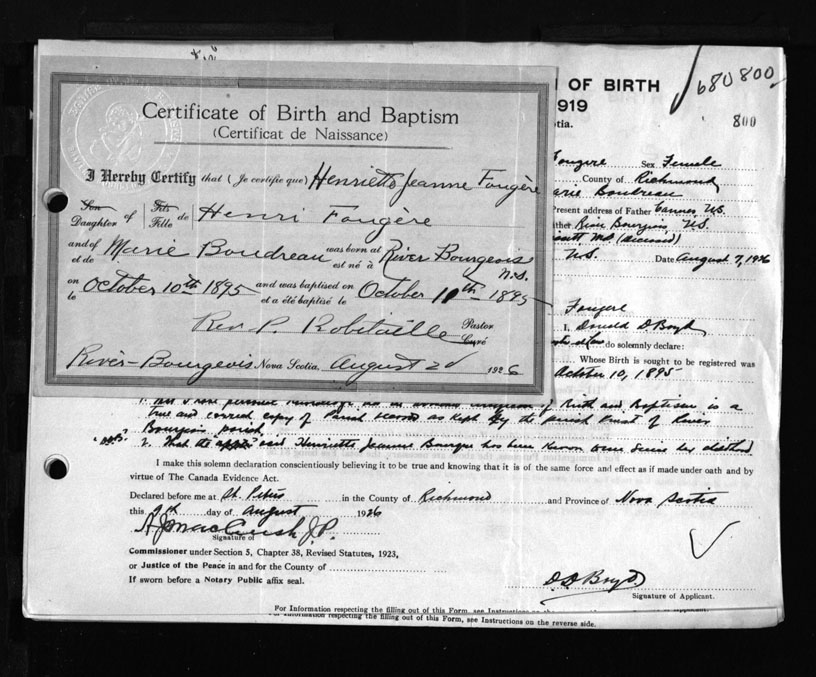 Certificate of Birth and Baptism
(Certificat de Naissance)
I Hereby Certify that (Je certifie que) Henrietta Jeanne Fougère
Son Fils
Daughter of Fille de Henri Fougère
and of et de Marie Boudreau was born at est né à River Bourgeois N.S.
on le October 10th 1895 and was baptised on et a été baptisé le October 11th 1895
Rev. P. Robitaille Pastor Curé
River-Bourgeois Nova Scotia, August 2d 1926
680800
OF BIRTH
919
tia.
800
Fougere Sex Female
County of Richmond
arie Boudreau
Present address of Father
ther River Bourgeois,
(deceased)
Date August 7, 1926
Fougere
I, Donald D Boyd
do solemnly declare:
Whose Birth is sought to be registered was
October 10, 1895
of Birth and Baptism is a
true and correct copy of Parish record as kept by the parish Priest of River
Bourgeois parish.
2. That the said Henrietta Jeanne
I make this solemn declaration conscientiously believing it to be true and knowing that it is of the same force and effect as if made under oath and by
virtue of The Canada Evidence Act.
Declared before me at St. Peters in the County of Richmond and Province of Nova Scotia
this 7th day of August 1926
Signature of
Commissioner under Section 5, Chapter 38, Revised Statutes, 1923,
or Justice of the Peace in and for the County of
If sworn before a Notary Public affix seal.
D. D. Boyd.
Signature of Applicant.
For Information respecting the filling out of this Form, see Instructions on
of Applicant.
For Information respecting the filling out of this Form, see Instructions on the reverse side.